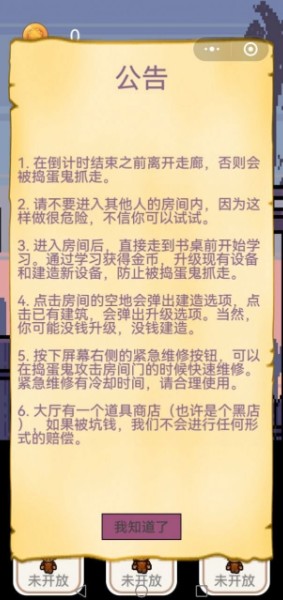 0
公告
1. 在倒计时结束之前离开走廊，否则会
被捣蛋鬼抓走。
2. 请不要进入其他人的房间内，因为这
样做很危险，不信你可以试试。
3. 进入房间后，直接走到书桌前开始学
习。通过学习获得金币，升级现有设备
和建造新设备，防止被捣蛋鬼抓走。
4. 点击房间的空地会弹出建造选项，点
击已有建筑，会弹出升级选项。当然，
你可能没钱升级，没钱建造。
5. 按下屏幕右侧的紧急维修按钮，可以
在捣蛋鬼攻击房间门的时候快速维修。
紧急维修有冷却时间，请合理使用。
6. 大厅有一个道具商店（也许是个黑店
），如果被坑钱，我们不会进行任何形
式的赔偿。
我知道了
未开放 未开放 未开放